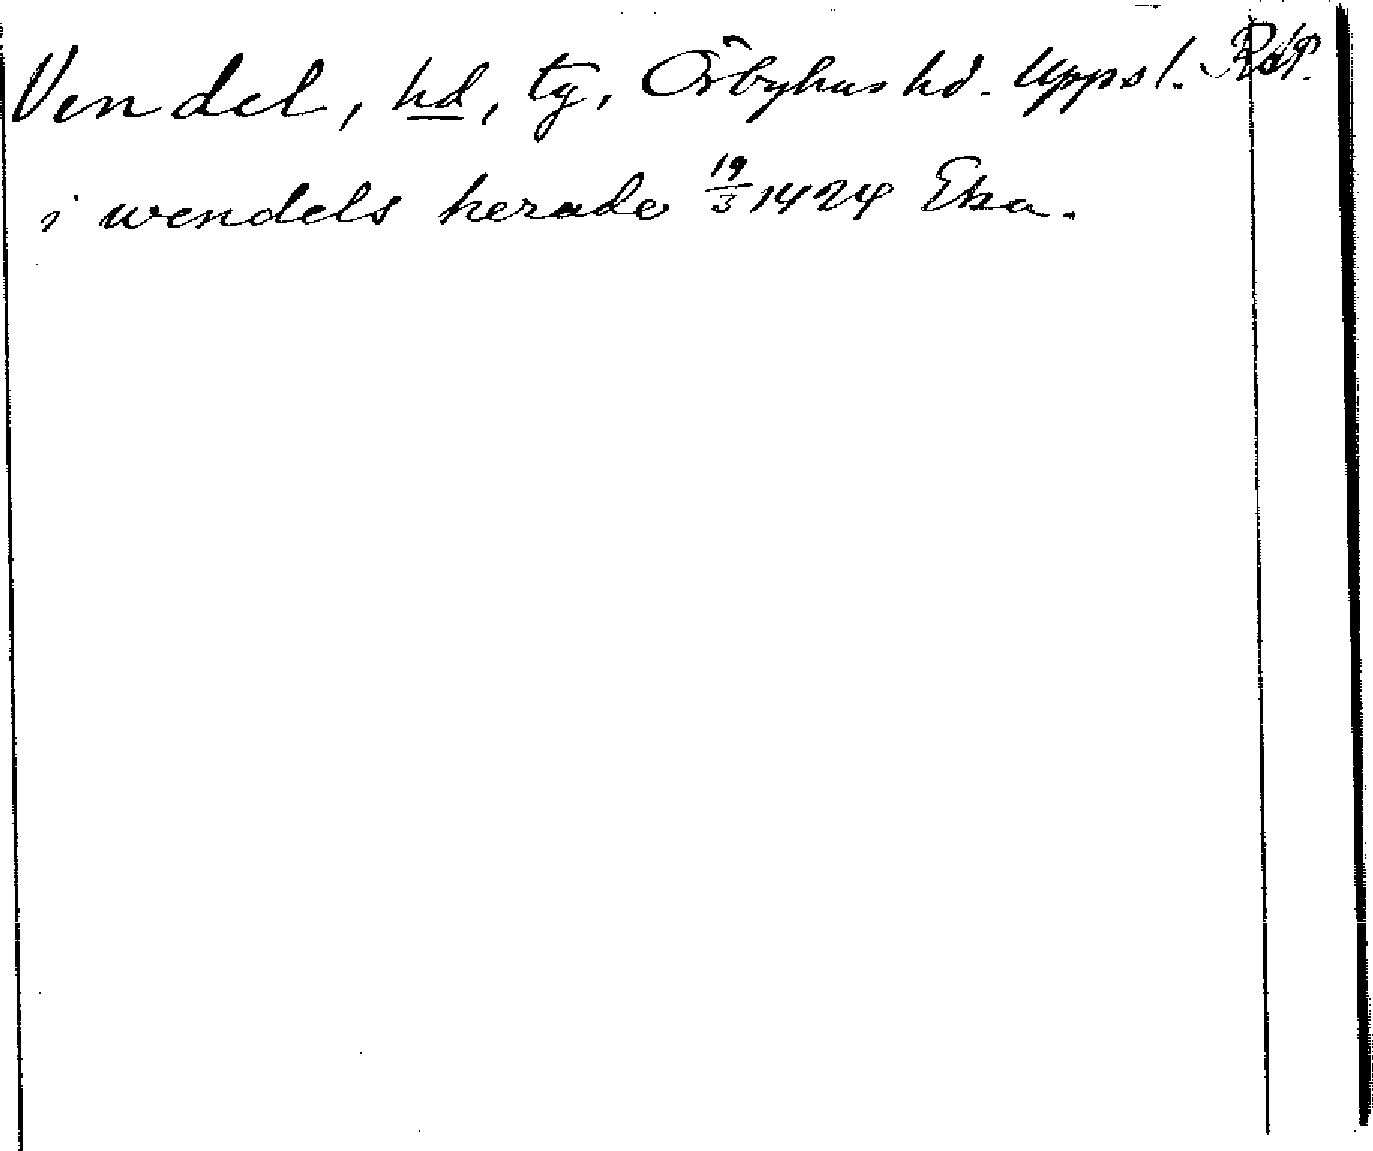 Vendel, hd, tg, Örbyhus hd. Uppsl. RAP.
i wendels herade 19/3 1424 Eka.